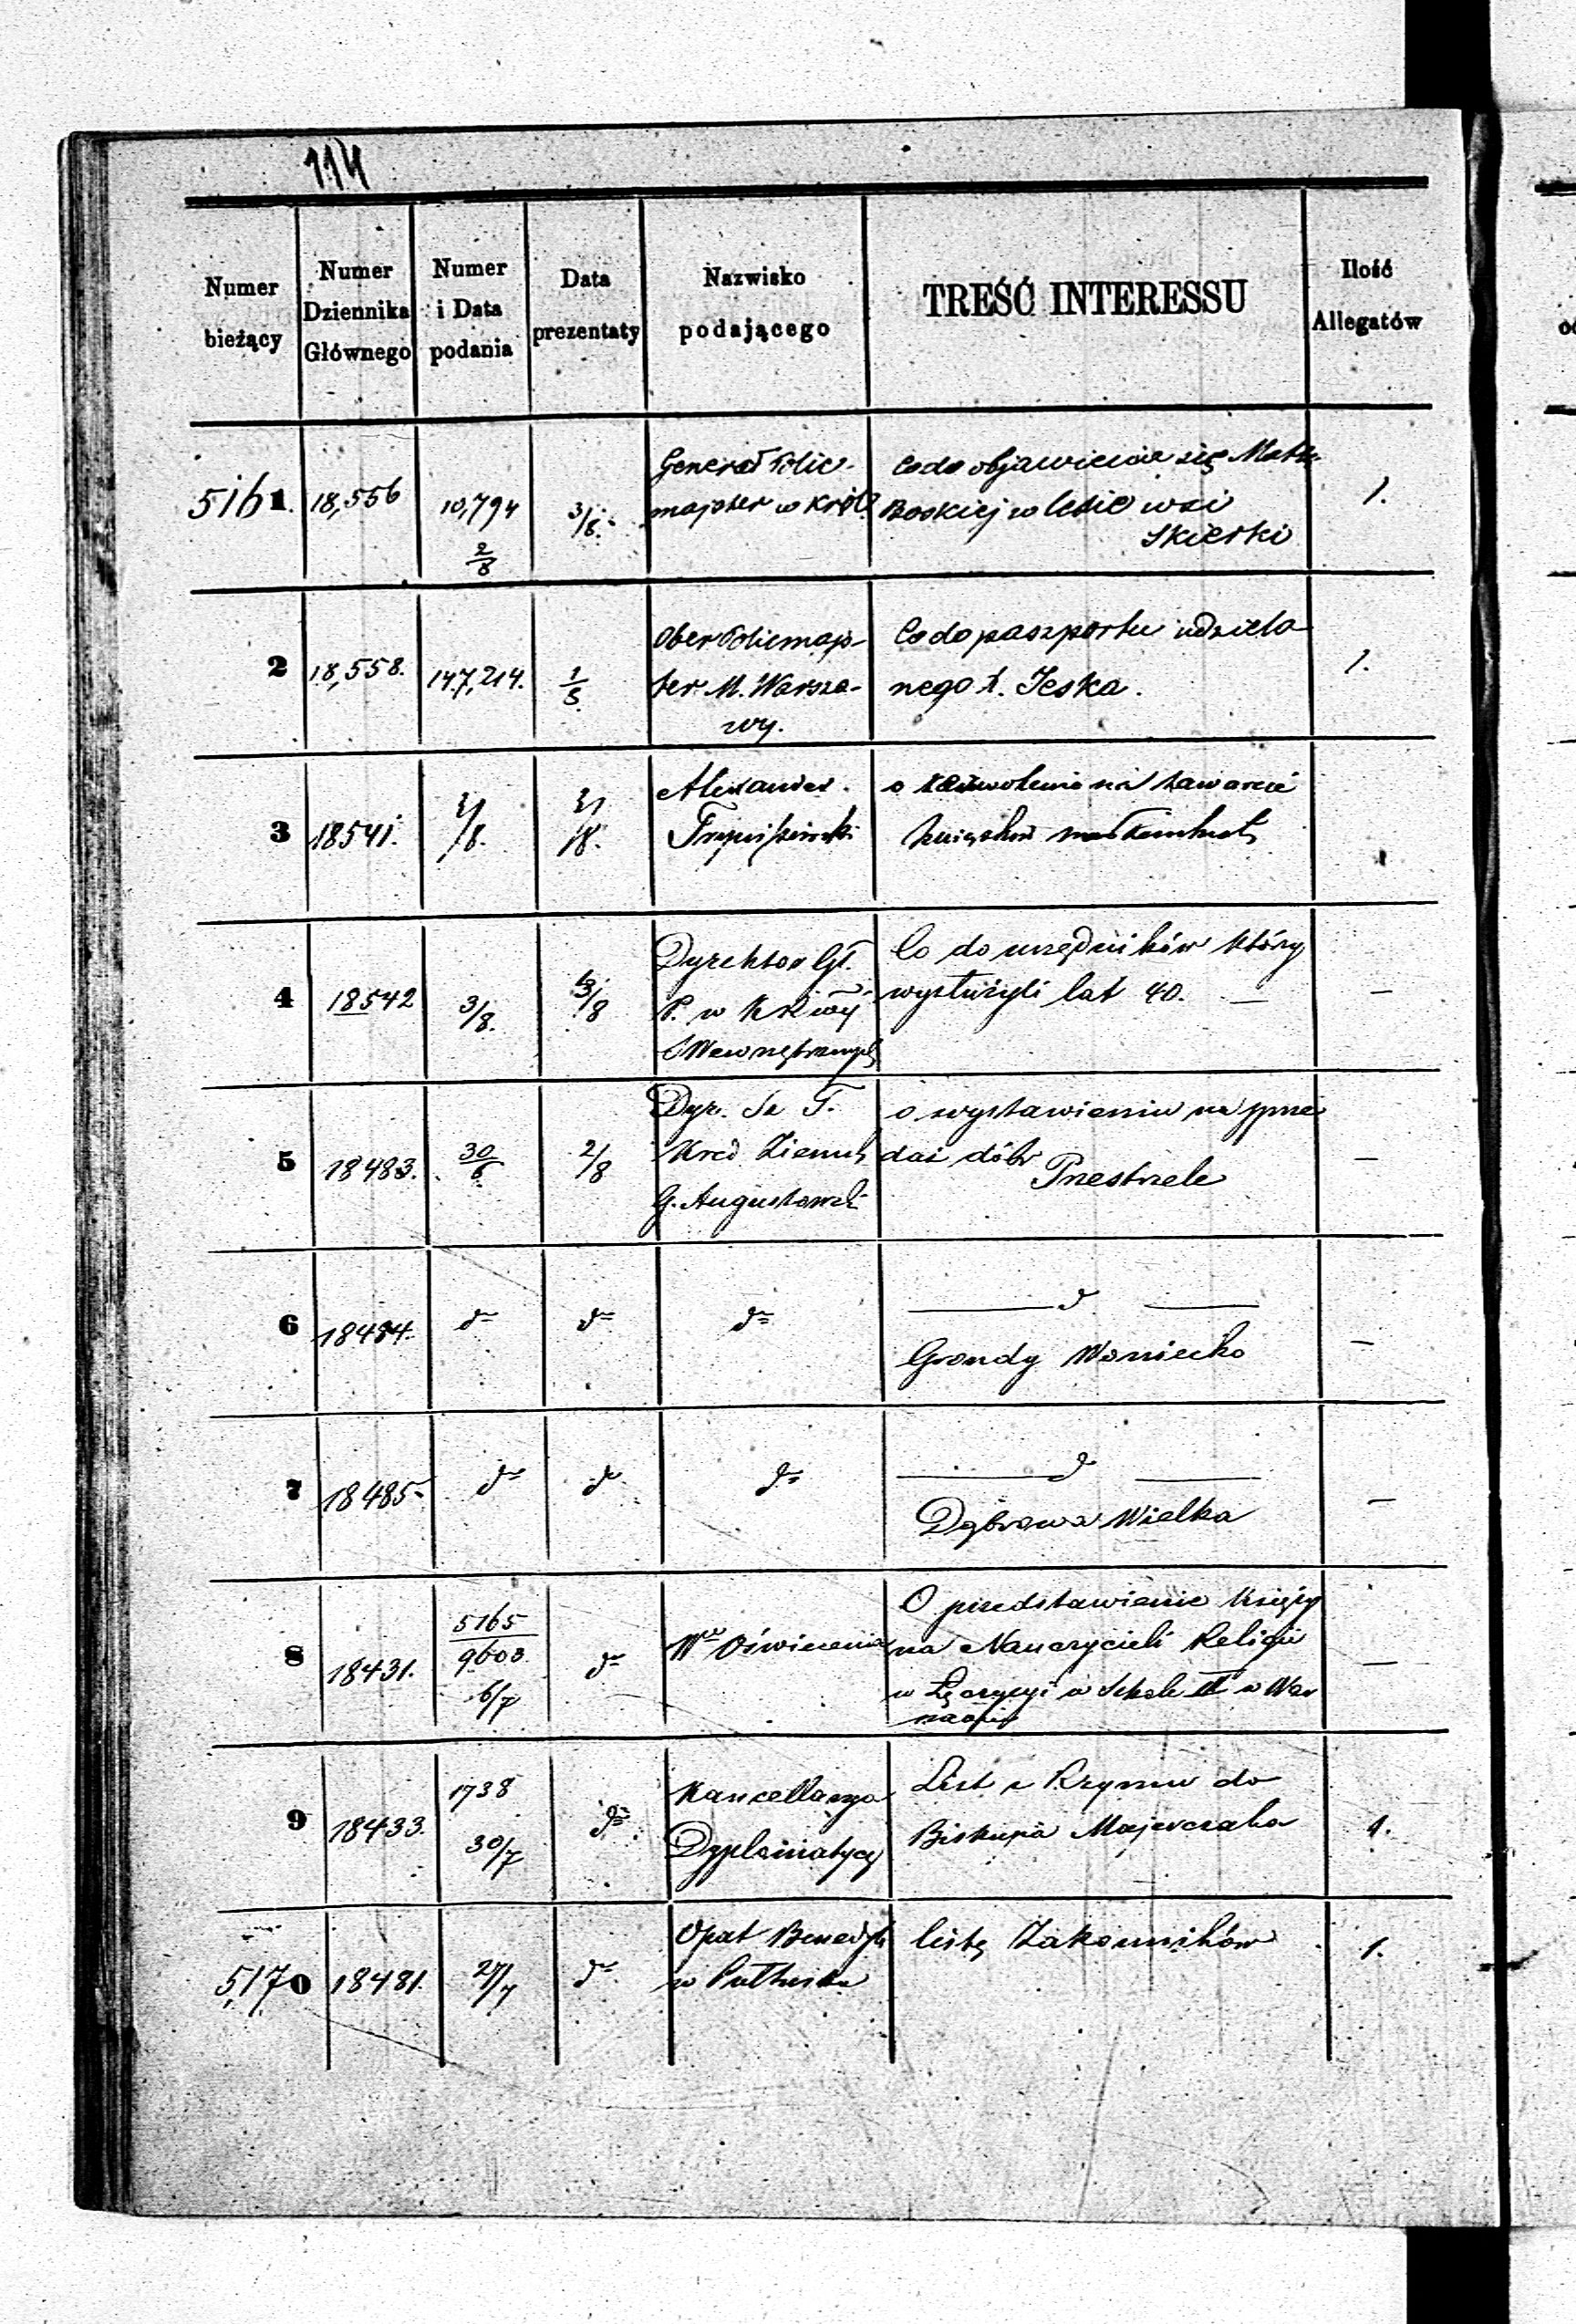 114
Numer bieżący
Numer Dziennika Głównego
Numer i Data podania
Data prezentaty
Nazwisko podającego
TREŚĆ INTERESSU
Ilość Allegatów
5161. 18,556 10,794 2/8 3/8. Generał Polic-
majster w Król.
Co do objawienia się Matki
Boskiej w lesie wsi
Skierki
1.
2 18,558. 147,214. Ober Policmaj-
ster M. Warsza-
wy.
Co do paszportu udzielo
nego X. Jeska.
1.
3 18541. Alexander
o zezwolenie na zawarcie
4 18542 3/8. 3/8 Dyrektor Gł.
P. w K.
Wewnętrznych
Co do urzędników którzy
wysłużyli lat 40. —
—
5 18483. 30/6 2/8 Dyr. T.
Kred Ziemsk
G. Augustowski
o wystawieniu na sprze
daż dóbr
Przestrzele
—
6 18484. do do do
— d —
Grondy Woniecko
—
7 18485. do do do
— d —
Dąbrowa Wielka
—
8 18431. 5165
9603
6/7
do Oświecenia
O przedstawienie Księży
na Nauczycieli Religii
w Łęczycy i w Szkole w War
szawie
—
9 18433. 1738
30/7
do Kancellarya
Dyplomatycz
List z Rzymu do
Biskupa Majerczaka
1.
5170 18481. 27/7 do Opat Benedyk
w Pułtusku
listę Zakonników
1.